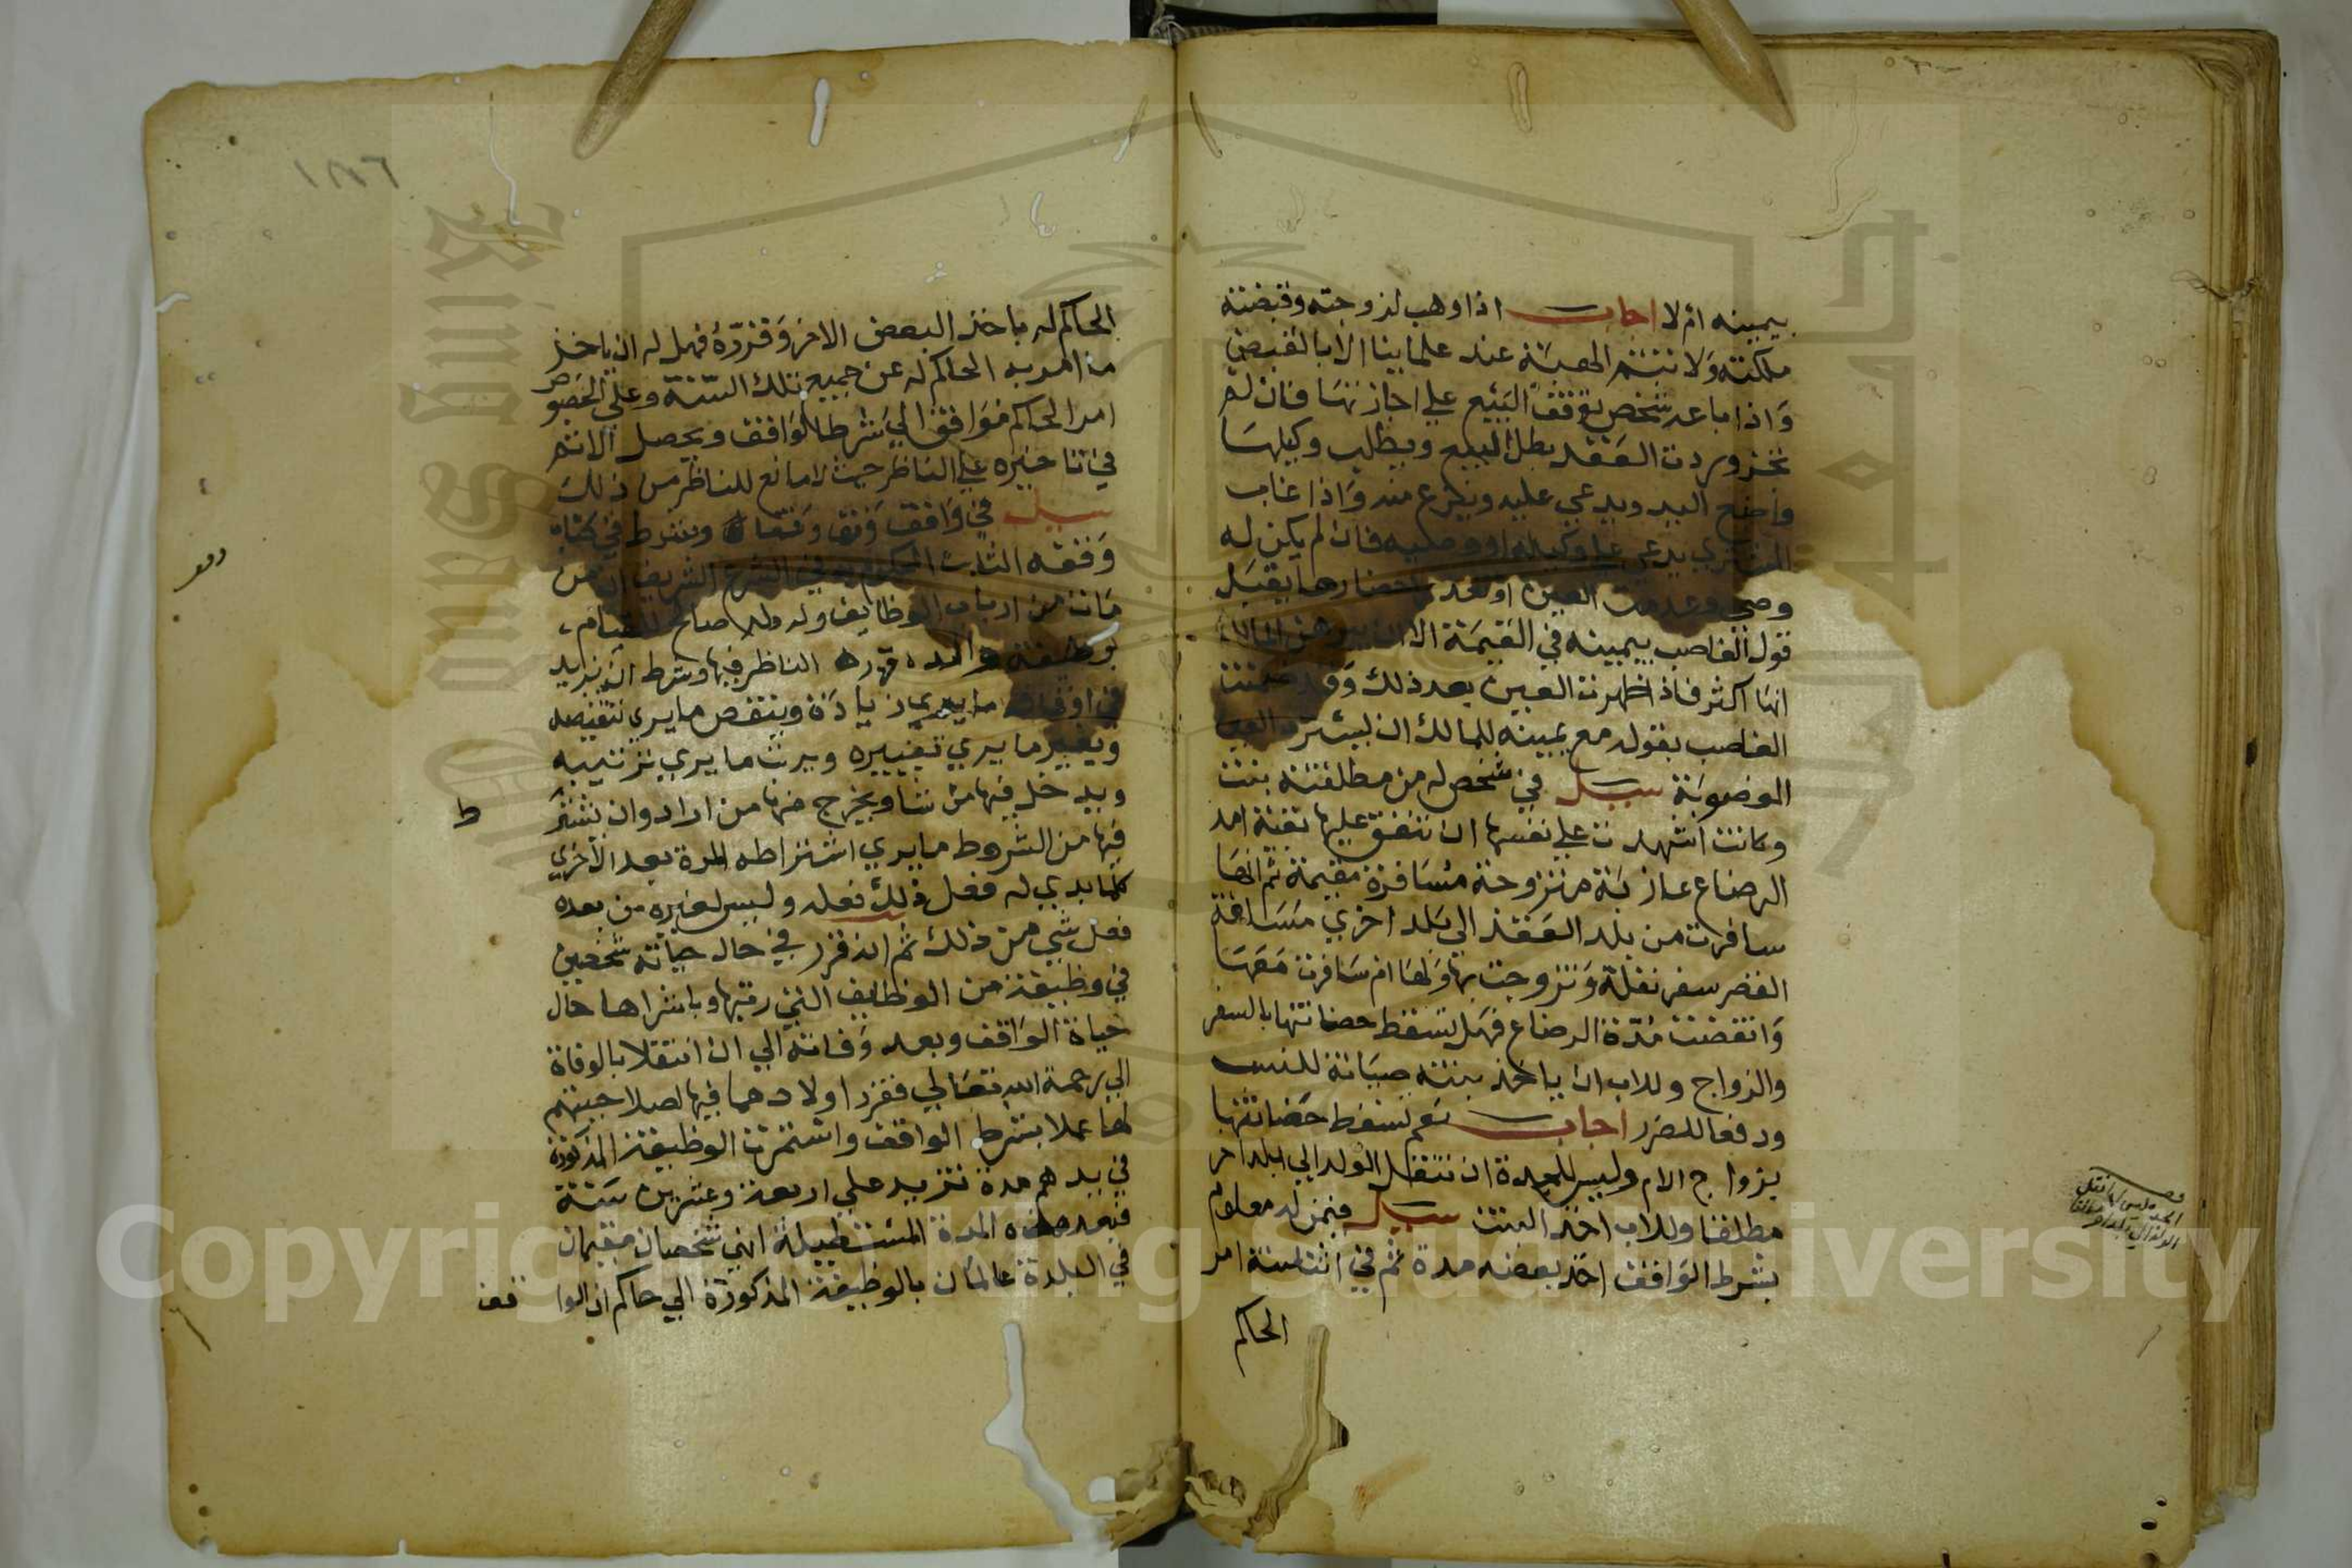 بيمينه ام لا اجاب اذا وهب لزوجته وقبضته
ملكته ولا تتم الهبة عند علماينا الا بالقبض
واذا باعه شخص توقف البيع علي اجازتها فان لم
تجز وردت العقد بطل البيع ويطلب وكيلها
واضع اليد ويدعي عليه وينزع منه واذا غاب
المشتري يدعي علي وكيله او وصيه فان لم يكن له
وصي وعدمت العين او تعذر احضارها يقبل
قول الغاصب بيمينه في القيمة الا ان يبرهن المالك
انها اكثر فاذا ظهرت العين بعد ذلك وقد ضمنت
الغاصب بقوله مع يمينه للمالك ان يسترد العين
المغصوبة سيل في شخص له من مطلقته بنت
وكانت اشهدت علي نفسها ان تنفق عليها بقية امد
الرضاع عازبة متزوجة مسافرة مقيمة ثم انها
سافرت من بلد العقد الي بلد اخري مسافة
القصر سفر نقلة وتزوجت بها ولها ام سافرت معها
وانقضت مدة الرضاع فهل تسقط حضانتها بالسفر
والزواج وللاب ان ياخذ بنته صيانة للنسب
ودفعا للضرر اجاب نعم تسقط حضانتها
بزواج الام وليس للجدة ان تنقل الولد الي بلد اخر
مطلقا وللاب اخذ البنت سيل فيمن له معلوم
بشرط الواقف اخذ بعضه مدة ثم في اثنا سنة امر
الحاكم
الجدة ليس لها نقل
الولد الي بلد اخر مطلقا
١٨٦
الحاكم له باخذ البعض الاخر وقرره فهل له ان ياخذ
ما امر به الحاكم له عن جميع تلك السنة وعلي الخصوص
امر الحاكم موافق الي شرط الواقف ويحصل الاثم
في تاخيره علي الناظر حيث لا مانع للناظر من ذلك
سيل في واقف وقف وقفا وشرط في كتاب
وقفه الثابت المحكوم به في الشرع الشريف ان من
مات من ارباب الوظايف وله ولد صالح للقيام
بوظيفة والده قرره الناظر فيها وشرط ان يزيد
في اوقافه ما يري زيادة وينقص ما يري تنقيصه
ويغير ما يري تغييره ويرتب ما يري ترتيبه
ويدخل فيها من شا ويخرج منها من اراد وان يشترط
فيها من الشروط ما يري اشتراطه المرة بعد الاخري
كلما بدي له فعل ذلك فعله وليس لغيره من بعده
فعل شي من ذلك ثم انه قرر في حال حياته شخصين
في وظيفة من الوظايف التي رتبها وباشراها حال
حياة الواقف وبعد وفاته الي ان انتقلا بالوفاة
الي رحمة الله تعالي فقرر اولادهما فيها لصلاحيتهم
لها عملا بشرط الواقف واستمرت الوظيفة المذكورة
في يدهم مدة تزيد علي اربعة وعشرين سنة
فبعد هذه المدة المستطيلة انهي شخصان مقيمان
في البلدة عالمان بالوظيفة المذكورة الي حاكم ان الواقف
Copyright © King Saud University